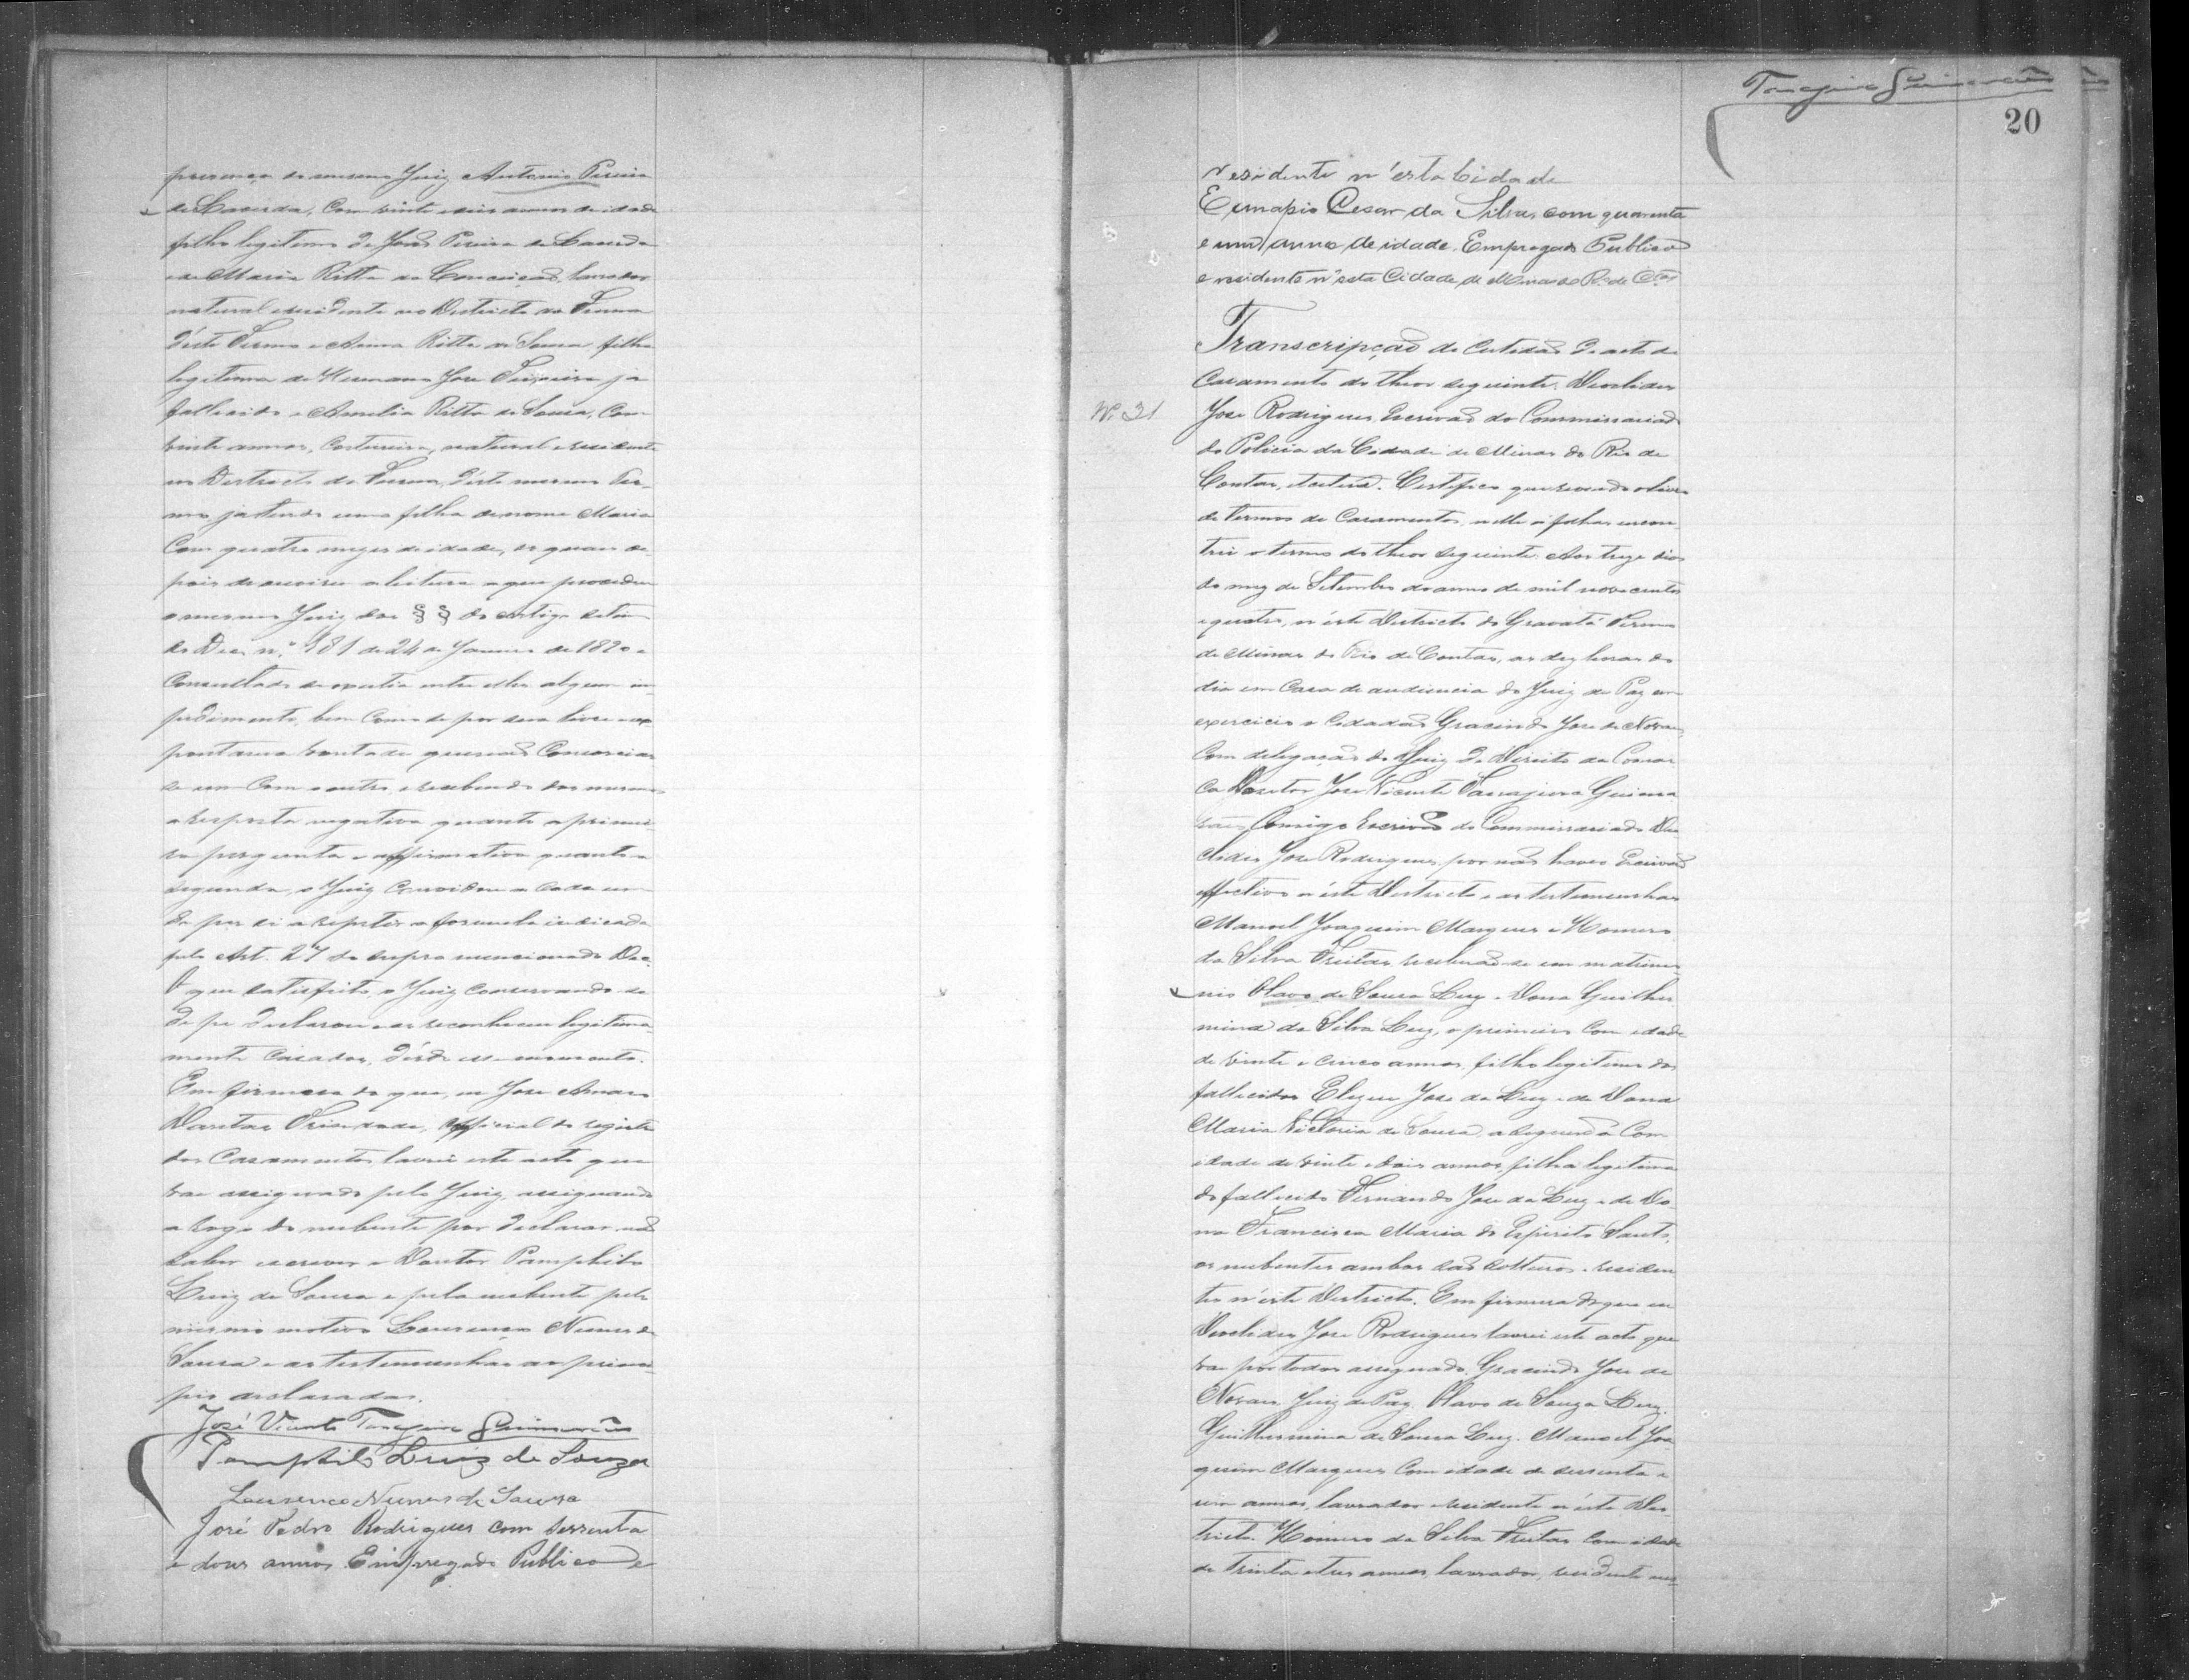 presença do mesmo Juiz Antonio Pereira
de Lacerda, com vinte e seis annos de idade
filho legitimo de José Pereira de Lacerda
e de Maria Ritta da Conceição, lavrador
natural e residente no Districto da Furna
d'este Termo e Anna Ritta de Sousa, filha
legitima de Hermano José Teixeira ja
fallecido e Amelia Ritta de Sousa, com
vinte annos, costureira, natural e residente
no Districto da Furna, d'este mesmo Ter-
mo, ja tendo uma filha de nome Maria
com quatro mezes de idade, os quaes de-
pois de ouvirem a leitura a que procedeu
o mesmo Juiz dos §§ do artigo setimo
do Dec. n.º 181 de 24 de Janeiro de 1890 e
consultado se existia entre elles algum im-
pedimento, bem como se por sua livre e es-
pontanea vontade queriaõ consorciar
se um com o outro, e recebendo dos mesmos
a resposta negativa quanto a primei-
ra pergunta e affirmativa quanto a
segunda, o Juiz convidou a cada um
de per si a repetir a formula indicada
pelo Art. 27 do supra mencionado Dec.
O que satisfeito, o Juiz conservando-se
de pé declarou e os reconheceu legitima
mente casados, d'esde esse momento.
Em firmesa do que, eu José Amaro
Dantas Trindade, official do registro
dos Casamentos lavrei este acto que
vae assignado pelo Juiz, assignando
a rogo do nubente por declarar não
saber escrever o Doutor Pamphilo
Luiz de Sousa e pela nubente pelo
mesmo motivo Lourenço Nunes de
Sousa e as testemunhas ao princi-
pio declaradas.
José Vicente Tanajura Guimarães
Pamphilo Luiz de Souza
Lourenco Nunes de Souza
José Pedro Rodrigues com sessenta
e dous annos Empregado Publico e
Tanajura Guimarães
20
residente n'esta Cidade
Eunapio Cesar da Silva, com quarenta
e um annos de idade. Empregado Publico
e residente n'esta Cidade de Minas do R. de Ctas
Transcripção de Certidão de acto de
Casamento do theor seguinte. Deoclides
Nº 21
José Rodrigues, Escrivão do Commissariado
de Policia da Cidade de Minas do Rio de
Contas, etcetera. Certifico que revendo o livro
de termos de Casamentos, n'elle a folhas encon-
trei o termo do theor seguinte. Aos treze dias
do mez de Setembro do anno de mil novecentos
e quatro, n'este Districto do Gravatá Termo
de Minas do Rio de Contas, as dez horas do
dia em casa de audiencia do Juiz de Paz em
exercicio o Cidadão Gracindo José de Novaes
com delegação do Juiz de Direito da Comar
ca Doutor José Vicente Tanajura Guima
rães, Comigo Escrivão do Commissariado Deo
clides José Rodrigues, por não haver Escrivão
effectivo n'este Districto e as testemunhas
Manoel Joaquim Marques e Homero
da Silva Freitas receberão-se em matrimo
nio Olavo de Sousa Luz e Dona Guilher
mina da Silva Luz, o primeiro com idade
de vinte e cinco annos, filho legitimo dos
fallecidos José da Luz e de Dona
Maria Victoria de Sousa, a segunda com
idade de vinte e dois annos, filha legitima
do fallecido Fernando José da Luz e de Do
na Francisca Maria do Espirito Santo,
os nubentes ambos são solteiros e residen
tes n'este Districto. Em firmesa do que eu
Deoclides José Rodrigues lavrei este acto que
vae por todos assignado. Gracindo José de
Novaes Juiz de Paz. Olavo de Souza Luz.
Guilhermina de Sousa Luz. Manoel Joa
quim Marques com idade de sessenta e
um annos, lavrador e residente n'este Dis
tricto. Homero da Silva Freitas com idade
de trinta e tres annos, lavrador, residente nes-